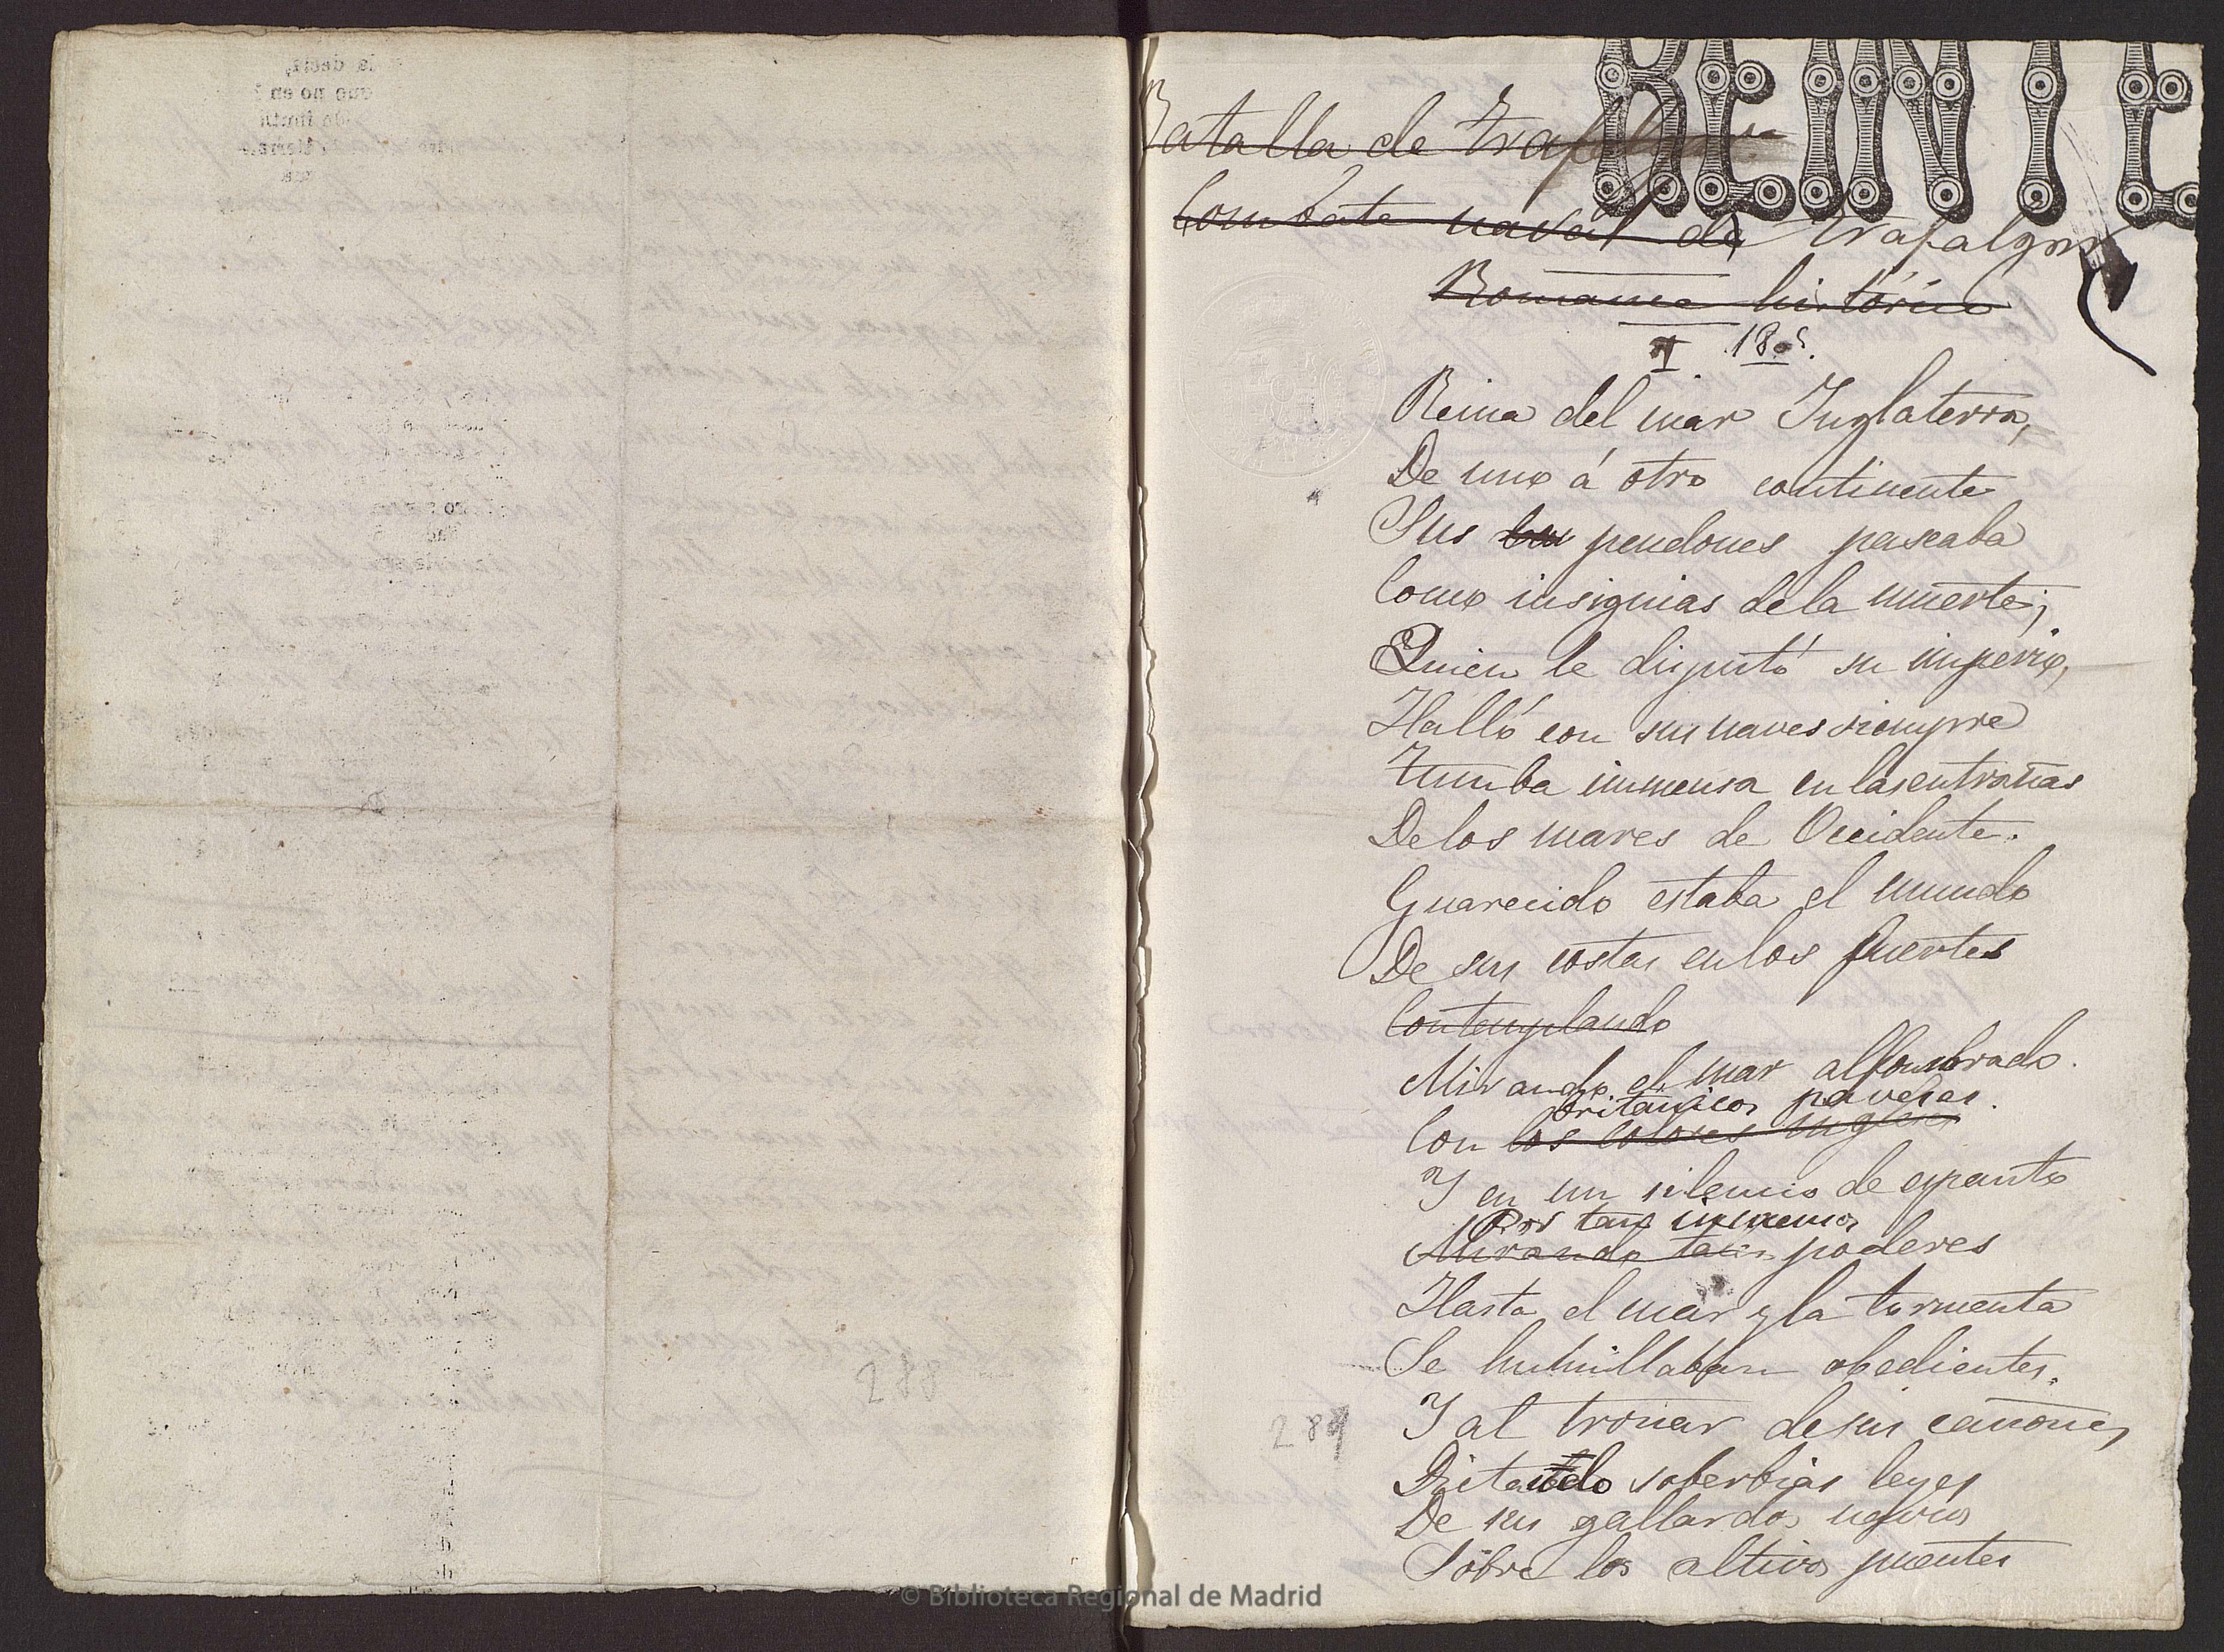 288
REINTE
Batalla de Trafalgar
Combate naval de Trafalgar
Romance histórico
I 1805.
Reina del mar Inglaterra,
De uno á otro continente
Sus pendones paseaba
Como insignias de la muerte;
Quien le disputó su imperio,
Halló con sus naves siempre
Tumba inmensa en las entrañas
De los mares de Occidente.
Guarecido estaba el mundo
De sus costas en los fuertes
Contemplando
Mirando el mar alfombrado.
britanicos paveses.
Con los colores ingleses
Y en un silencio de espanto
Por tan inmensos
Mirando tales poderes
Hasta el mar y la tormenta
Se humillaban obedientes.
289
Y al tronar de sus cañones
Dictando soberbias leyes
De sus gallardos navios
Sobre los altivos puentes
© Biblioteca Regional de Madrid